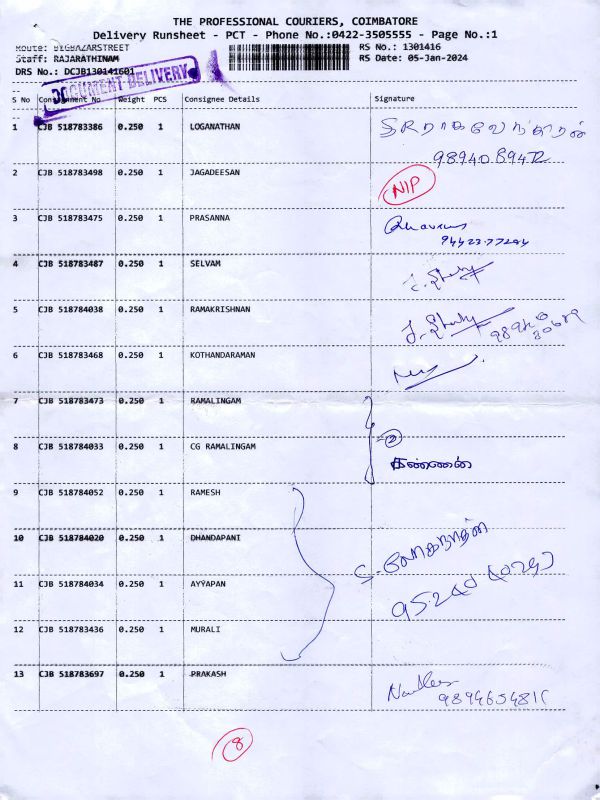 THE PROFESSIONAL COURIERS, COIMBATORE
Delivery Runsheet - PCT - Phone No.:0422-3505555 - Page No.:1
Route: BIGBAZARSTREET
Staff: RAJARATHINAM
DRS No.: DCJB130141601
RS No.: 1301416
RS Date: 05-Jan-2024
DOCUMENT DELIVERY
S No Consignment No Weight PCS Consignee Details Signature
1 CJB 518783386 0.250 1 LOGANATHAN
98940 89472
2 CJB 518783498 0.250 1 JAGADEESAN NIP
3 CJB 518783475 0.250 1 PRASANNA
4 CJB 518783487 0.250 1 SELVAM
5 CJB 518784038 0.250 1 RAMAKRISHNAN
6 CJB 518783468 0.250 1 KOTHANDARAMAN
7 CJB 518783473 0.250 1 RAMALINGAM
8 CJB 518784033 0.250 1 CG RAMALINGAM
கண்ணன்
9 CJB 518784052 0.250 1 RAMESH
10 CJB 518784020 0.250 1 DHANDAPANI
11 CJB 518784034 0.250 1 AYYAPAN
12 CJB 518783436 0.250 1 MURALI
13 CJB 518783697 0.250 1 PRAKASH
8